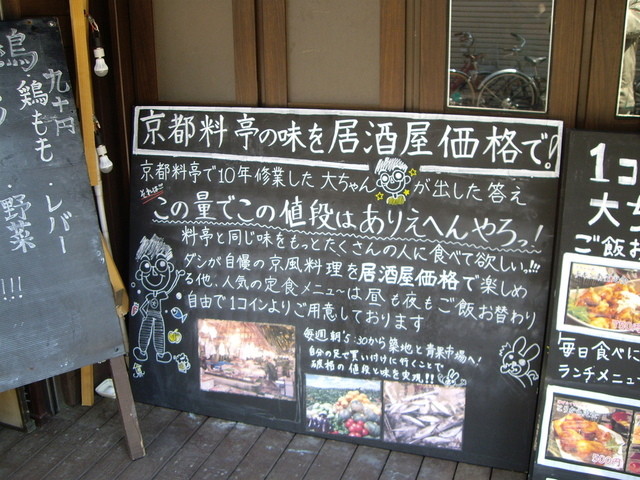 京都料亭の味を居酒屋価格で!
京都料亭で10年修業した大ちゃんが出した答え
それは…
この量でこの値段はありえへんやろっ!
料亭と同じ味をもっとたくさんの人に食べて欲しいっ!!!
ダシが自慢の京風料理を居酒屋価格で楽しめ
る他、人気の定食メニュ〜は昼も夜もご飯お替わり
自由で1コインよりご用意しております
毎週朝5:30から築地と青果市場へ!
自分の足で買い付けに行くことで
破格の値段と味を実現!!
九十円
・鶏もも
・レバー
・野菜
!!!
1コ
大ち
ご飯お
毎日食べに
ランチメニュ